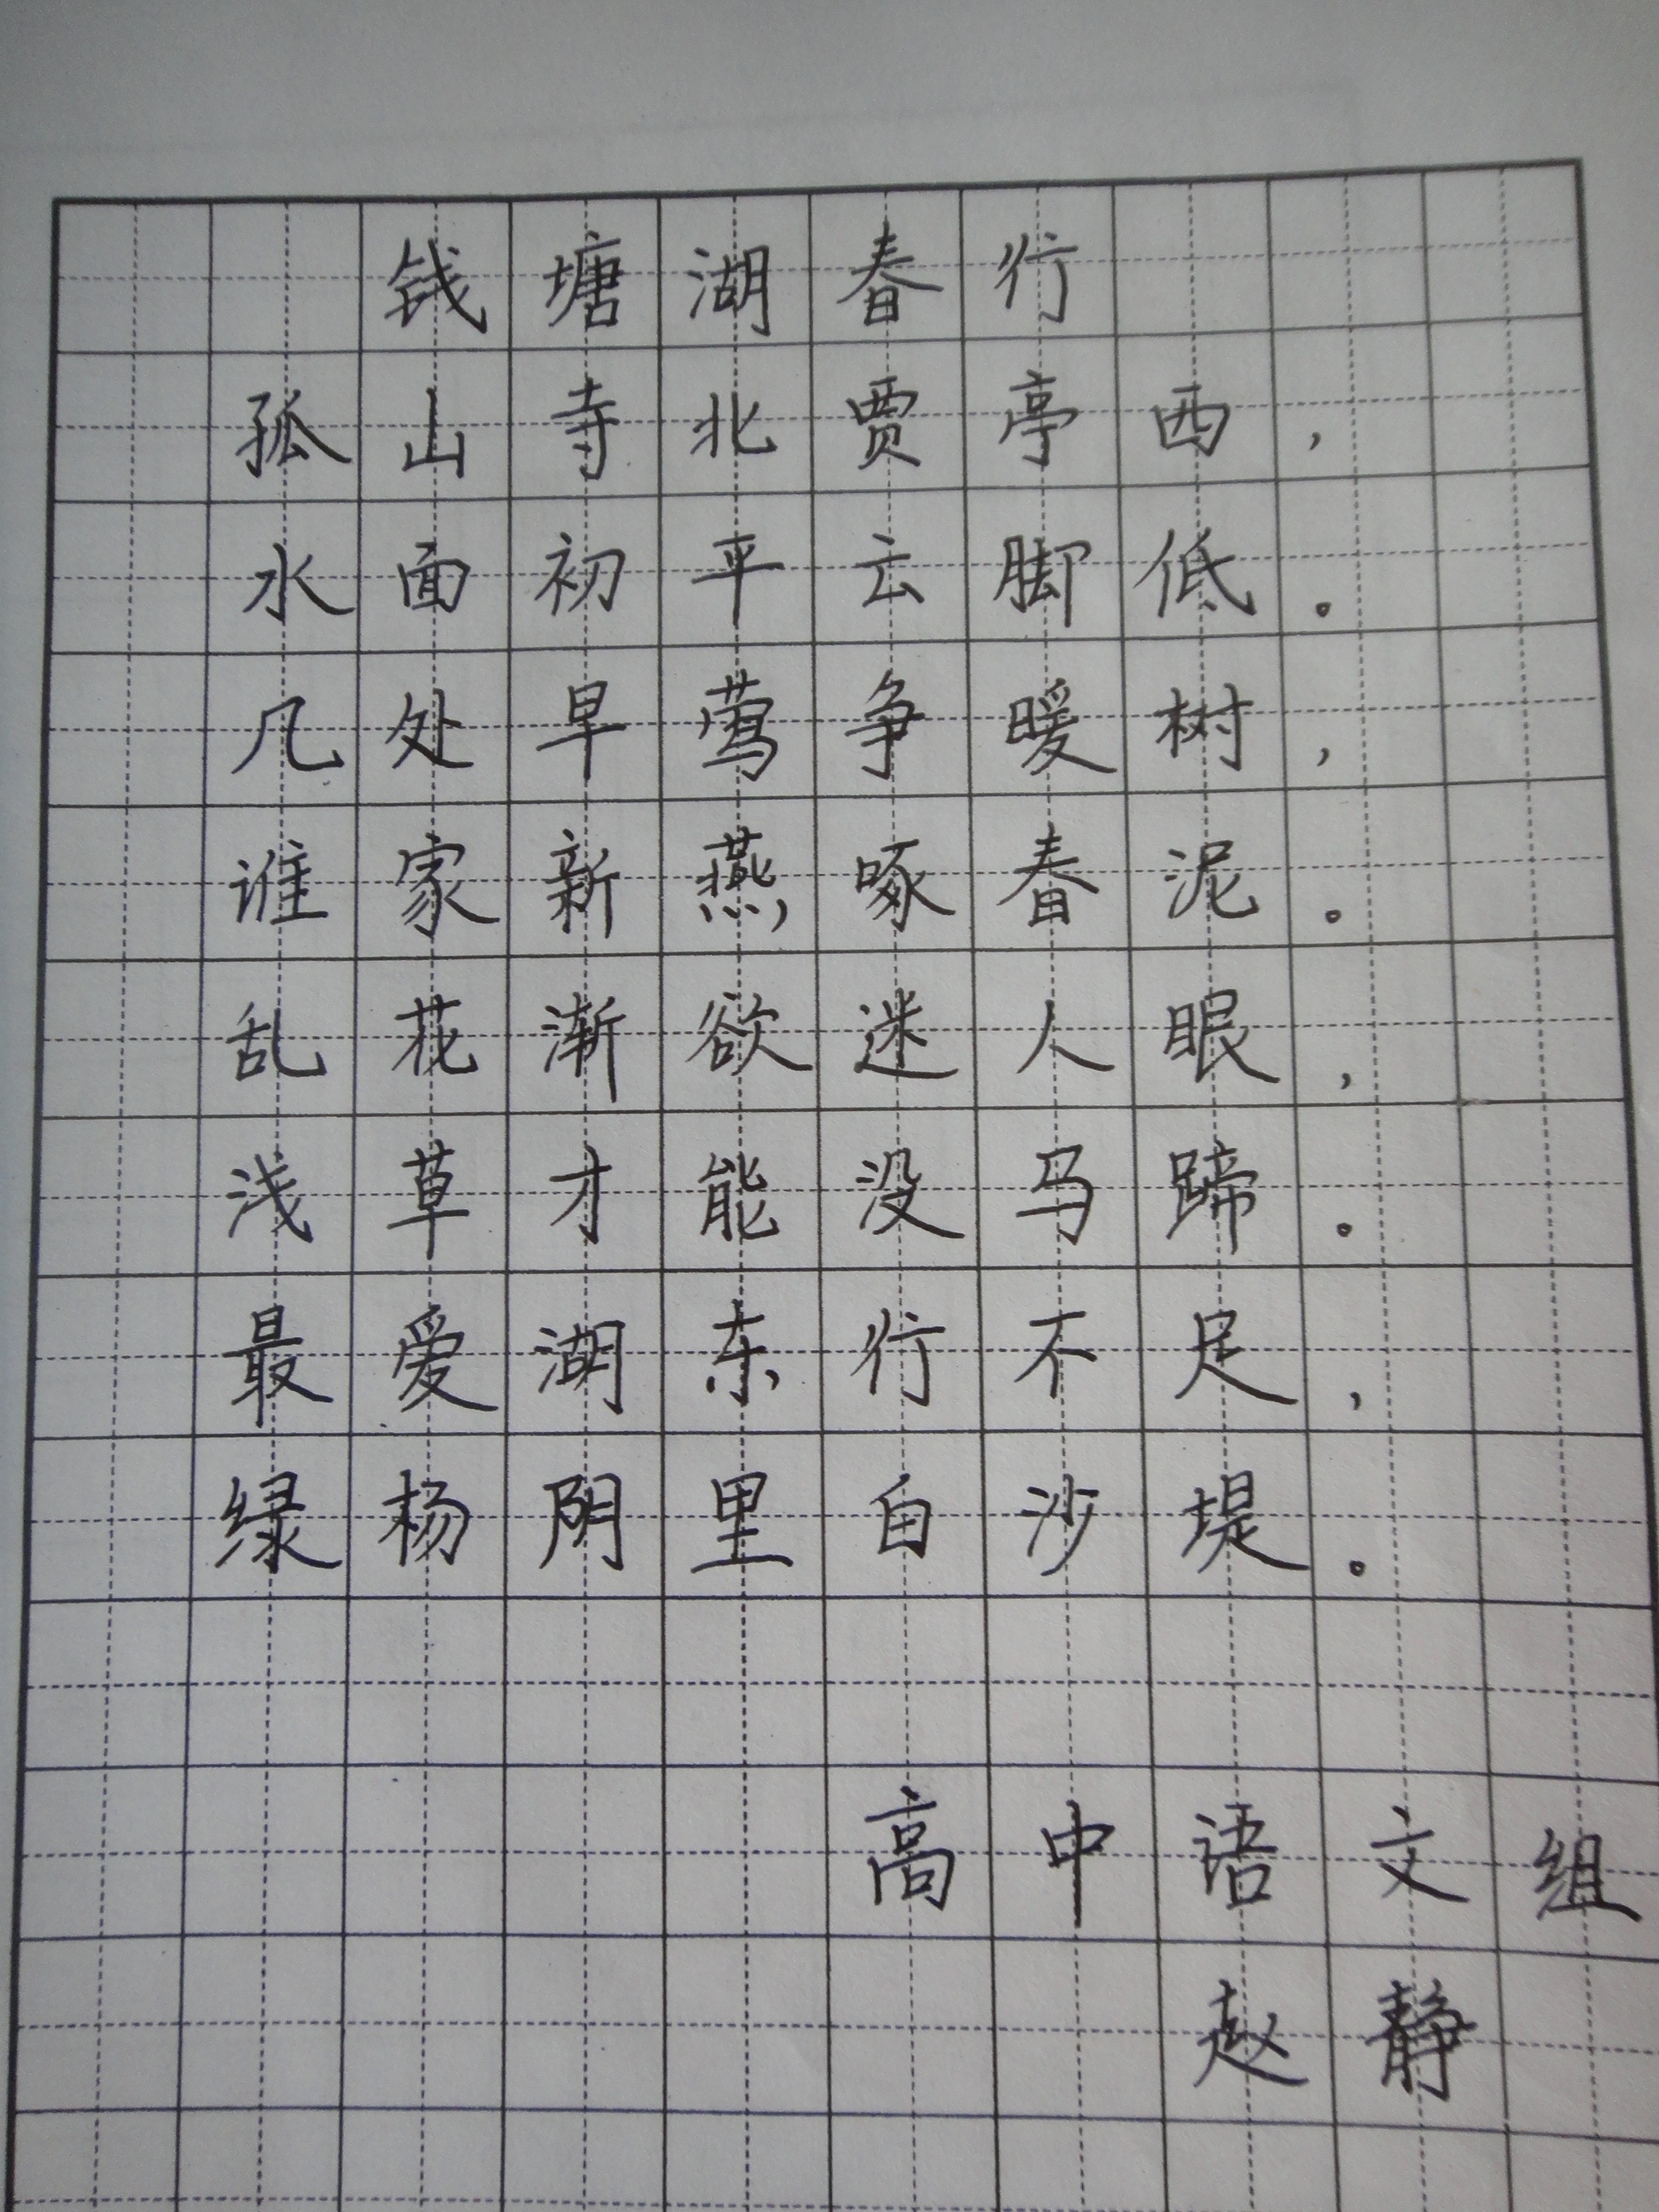 钱塘湖春行
孤山寺北贾亭西，
水面初平云脚低。
几处早莺争暖树，
谁家新燕啄春泥。
乱花渐欲迷人眼，
浅草才能没马蹄。
最爱湖东行不足，
绿杨阴里白沙堤。
高中语文组
赵静